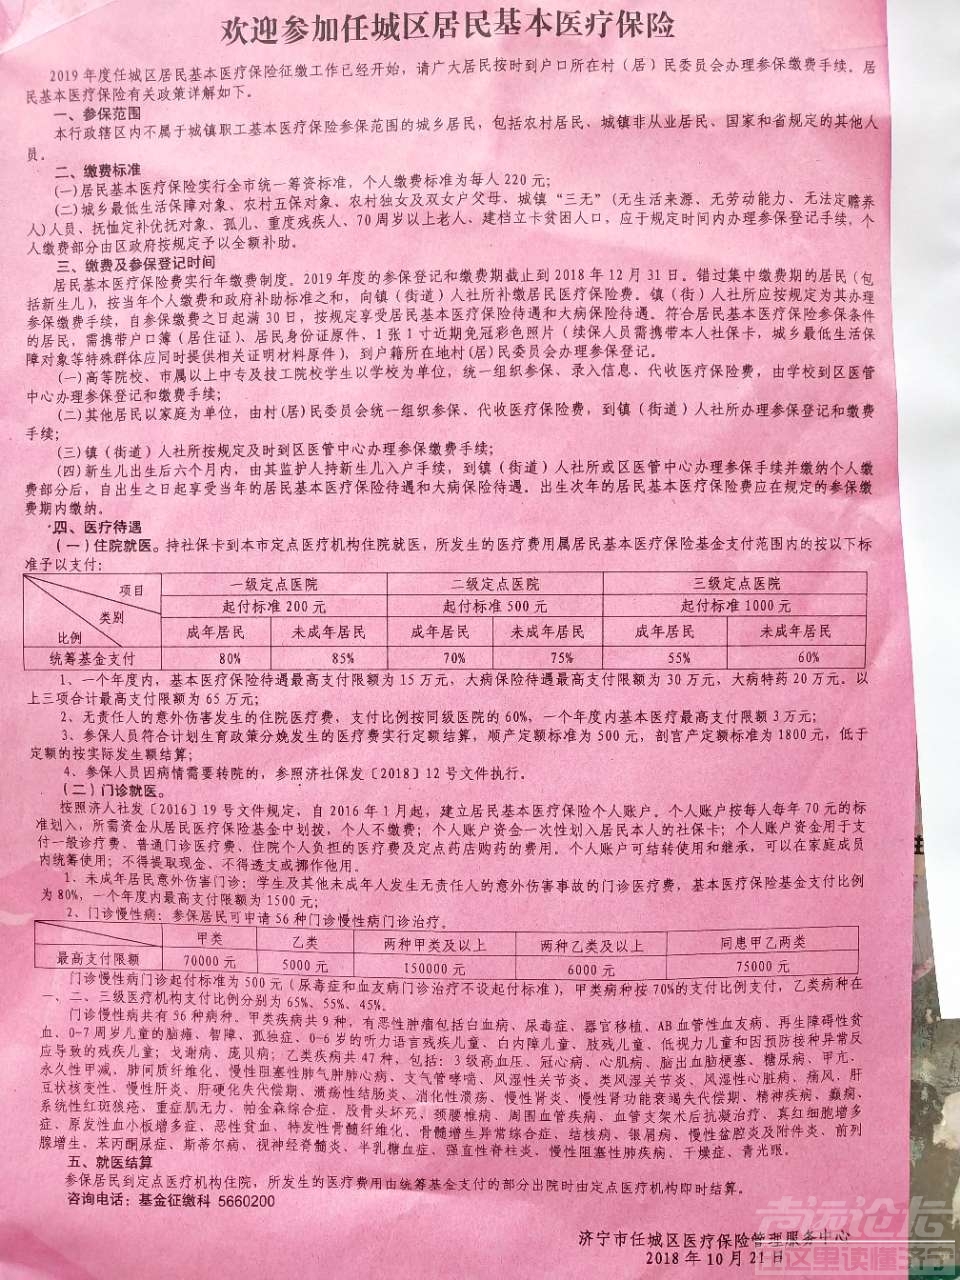 欢迎参加任城区居民基本医疗保险
2019年度任城区居民基本医疗保险征缴工作已经开始，请广大居民按时到户口所在村（居）民委员会办理参保缴费手续。居
民基本医疗保险有关政策详解如下。
一、参保范围
本行政辖区内不属于城镇职工基本医疗保险参保范围的城乡居民，包括农村居民、城镇非从业居民、国家和省规定的其他人
员。
二、缴费标准
(一)居民基本医疗保险实行全市统一筹资标准，个人缴费标准为每人220元；
(二)城乡最低生活保障对象、农村五保对象、农村独女及双女户父母、城镇“三无”(无生活来源、无劳动能力、无法定赡养
人)人员、抚恤定补优抚对象、孤儿、重度残疾人、70周岁以上老人、建档立卡贫困人口，应于规定时间内办理参保登记手续，个
人缴费部分由区政府按规定予以全额补助。
三、缴费及参保登记时间
居民基本医疗保险费实行年缴费制度。2019年度的参保登记和缴费期截止到2018年12月31日。错过集中缴费期的居民（包
括新生儿），按当年个人缴费和政府补助标准之和，向镇（街道）人社所补缴居民医疗保险费。镇（街）人社所应按规定为其办理
参保缴费手续，自参保缴费之日起满30日，按规定享受居民基本医疗保险待遇和大病保险待遇。符合居民基本医疗保险参保条件
的居民，需携带户口簿（居住证）、居民身份证原件、1张1寸近期免冠彩色照片（续保人员需携带本人社保卡，城乡最低生活保
障对象等特殊群体应同时提供相关证明材料原件），到户籍所在地村(居)民委员会办理参保登记。
(一)高等院校、市属以上中专及技工院校学生以学校为单位，统一组织参保、录入信息、代收医疗保险费，由学校到区医管
中心办理参保登记和缴费手续；
(二)其他居民以家庭为单位，由村(居)民委员会统一组织参保、代收医疗保险费，到镇（街道）人社所办理参保登记和缴费
手续；
(三)镇（街道）人社所按规定及时到区医管中心办理参保缴费手续；
(四)新生儿出生后六个月内，由其监护人持新生儿入户手续，到镇（街道）人社所或区医管中心办理参保手续并缴纳个人缴
费部分后，自出生之日起享受当年的居民基本医疗保险待遇和大病保险待遇。出生次年的居民基本医疗保险费应在规定的参保缴
费期内缴纳。
四、医疗待遇
（一）住院就医。持社保卡到本市定点医疗机构住院就医，所发生的医疗费用属居民基本医疗保险基金支付范围内的按以下标
准予以支付：
项目 一级定点医院 二级定点医院 三级定点医院
类别 起付标准200元 起付标准500元 起付标准1000元
比例 成年居民 未成年居民 成年居民 未成年居民 成年居民 未成年居民
统筹基金支付 80% 85% 70% 75% 55% 60%
1、一个年度内，基本医疗保险待遇最高支付限额为15万元，大病保险待遇最高支付限额为30万元，大病特药20万元。以
上三项合计最高支付限额为65万元；
2、无责任人的意外伤害发生的住院医疗费，支付比例按同级医院的60%，一个年度内基本医疗最高支付限额3万元；
3、参保人员符合计划生育政策分娩发生的医疗费实行定额结算，顺产定额标准为500元，剖宫产定额标准为1800元，低于
定额的按实际发生额结算；
4、参保人员因病情需要转院的，参照济社保发〔2018〕12号文件执行。
（二）门诊就医。
按照济人社发〔2016〕19号文件规定，自2016年1月起，建立居民基本医疗保险个人账户。个人账户按每人每年70元的标
准划入，所需资金从居民医疗保险基金中划拨，个人不缴费；个人账户资金一次性划入居民本人的社保卡；个人账户资金用于支
付一般诊疗费、普通门诊医疗费、住院个人负担的医疗费及定点药店购药的费用。个人账户可结转使用和继承，可以在家庭成员
内统筹使用；不得提取现金、不得透支或挪作他用。
1、未成年居民意外伤害门诊：学生及其他未成年人发生无责任人的意外伤害事故的门诊医疗费，基本医疗保险基金支付比例
为80%，一个年度内最高支付限额为1500元；
2、门诊慢性病：参保居民可申请56种门诊慢性病门诊治疗。
甲类 乙类 两种甲类及以上 两种乙类及以上 同患甲乙两类
最高支付限额 70000元 5000元 150000元 6000元 75000元
门诊慢性病门诊起付标准为500元（尿毒症和血友病门诊治疗不设起付标准），甲类病种按70%的支付比例支付，乙类病种在
一、二、三级医疗机构支付比例分别为65%、55%、45%。
门诊慢性病共有56种病种，甲类疾病共9种，有恶性肿瘤包括白血病、尿毒症、器官移植、AB血管性血友病、再生障碍性贫
血、0-7周岁儿童的脑瘫、智障、孤独症、0-6岁的听力语言残疾儿童、白内障儿童、肢残儿童、低视力儿童和因预防接种异常反
应导致的残疾儿童；戈谢病、庞贝病；乙类疾病共47种，包括：3级高血压、冠心病、心肌病、脑出血脑梗塞、糖尿病、甲亢、
永久性甲减、肺间质纤维化、慢性阻塞性肺气肿肺心病、支气管哮喘、风湿性关节炎、类风湿关节炎、风湿性心脏病、痛风、肝
豆状核变性、慢性肝炎、肝硬化失代偿期、溃疡性结肠炎、消化性溃疡、慢性肾炎、慢性肾功能衰竭失代偿期、精神疾病、癫痫、
系统性红斑狼疮、重症肌无力、帕金森综合症、股骨头坏死、颈腰椎病、周围血管疾病、血管支架术后抗凝治疗、真红细胞增多
症、原发性血小板增多症、恶性贫血、特发性骨髓纤维化、骨髓增生异常综合症、结核病、银屑病、慢性盆腔炎及附件炎、前列
腺增生、苯丙酮尿症、斯蒂尔病、视神经脊髓炎、半乳糖血症、强直性脊柱炎、慢性阻塞性肺疾病、干燥症、青光眼。
五、就医结算
参保居民到定点医疗机构住院，所发生的医疗费用由统筹基金支付的部分出院时由定点医疗机构即时结算。
咨询电话：基金征缴科 5660200
济宁市任城区医疗保险管理服务中心
2018年10月21日
由这里读懂济宁